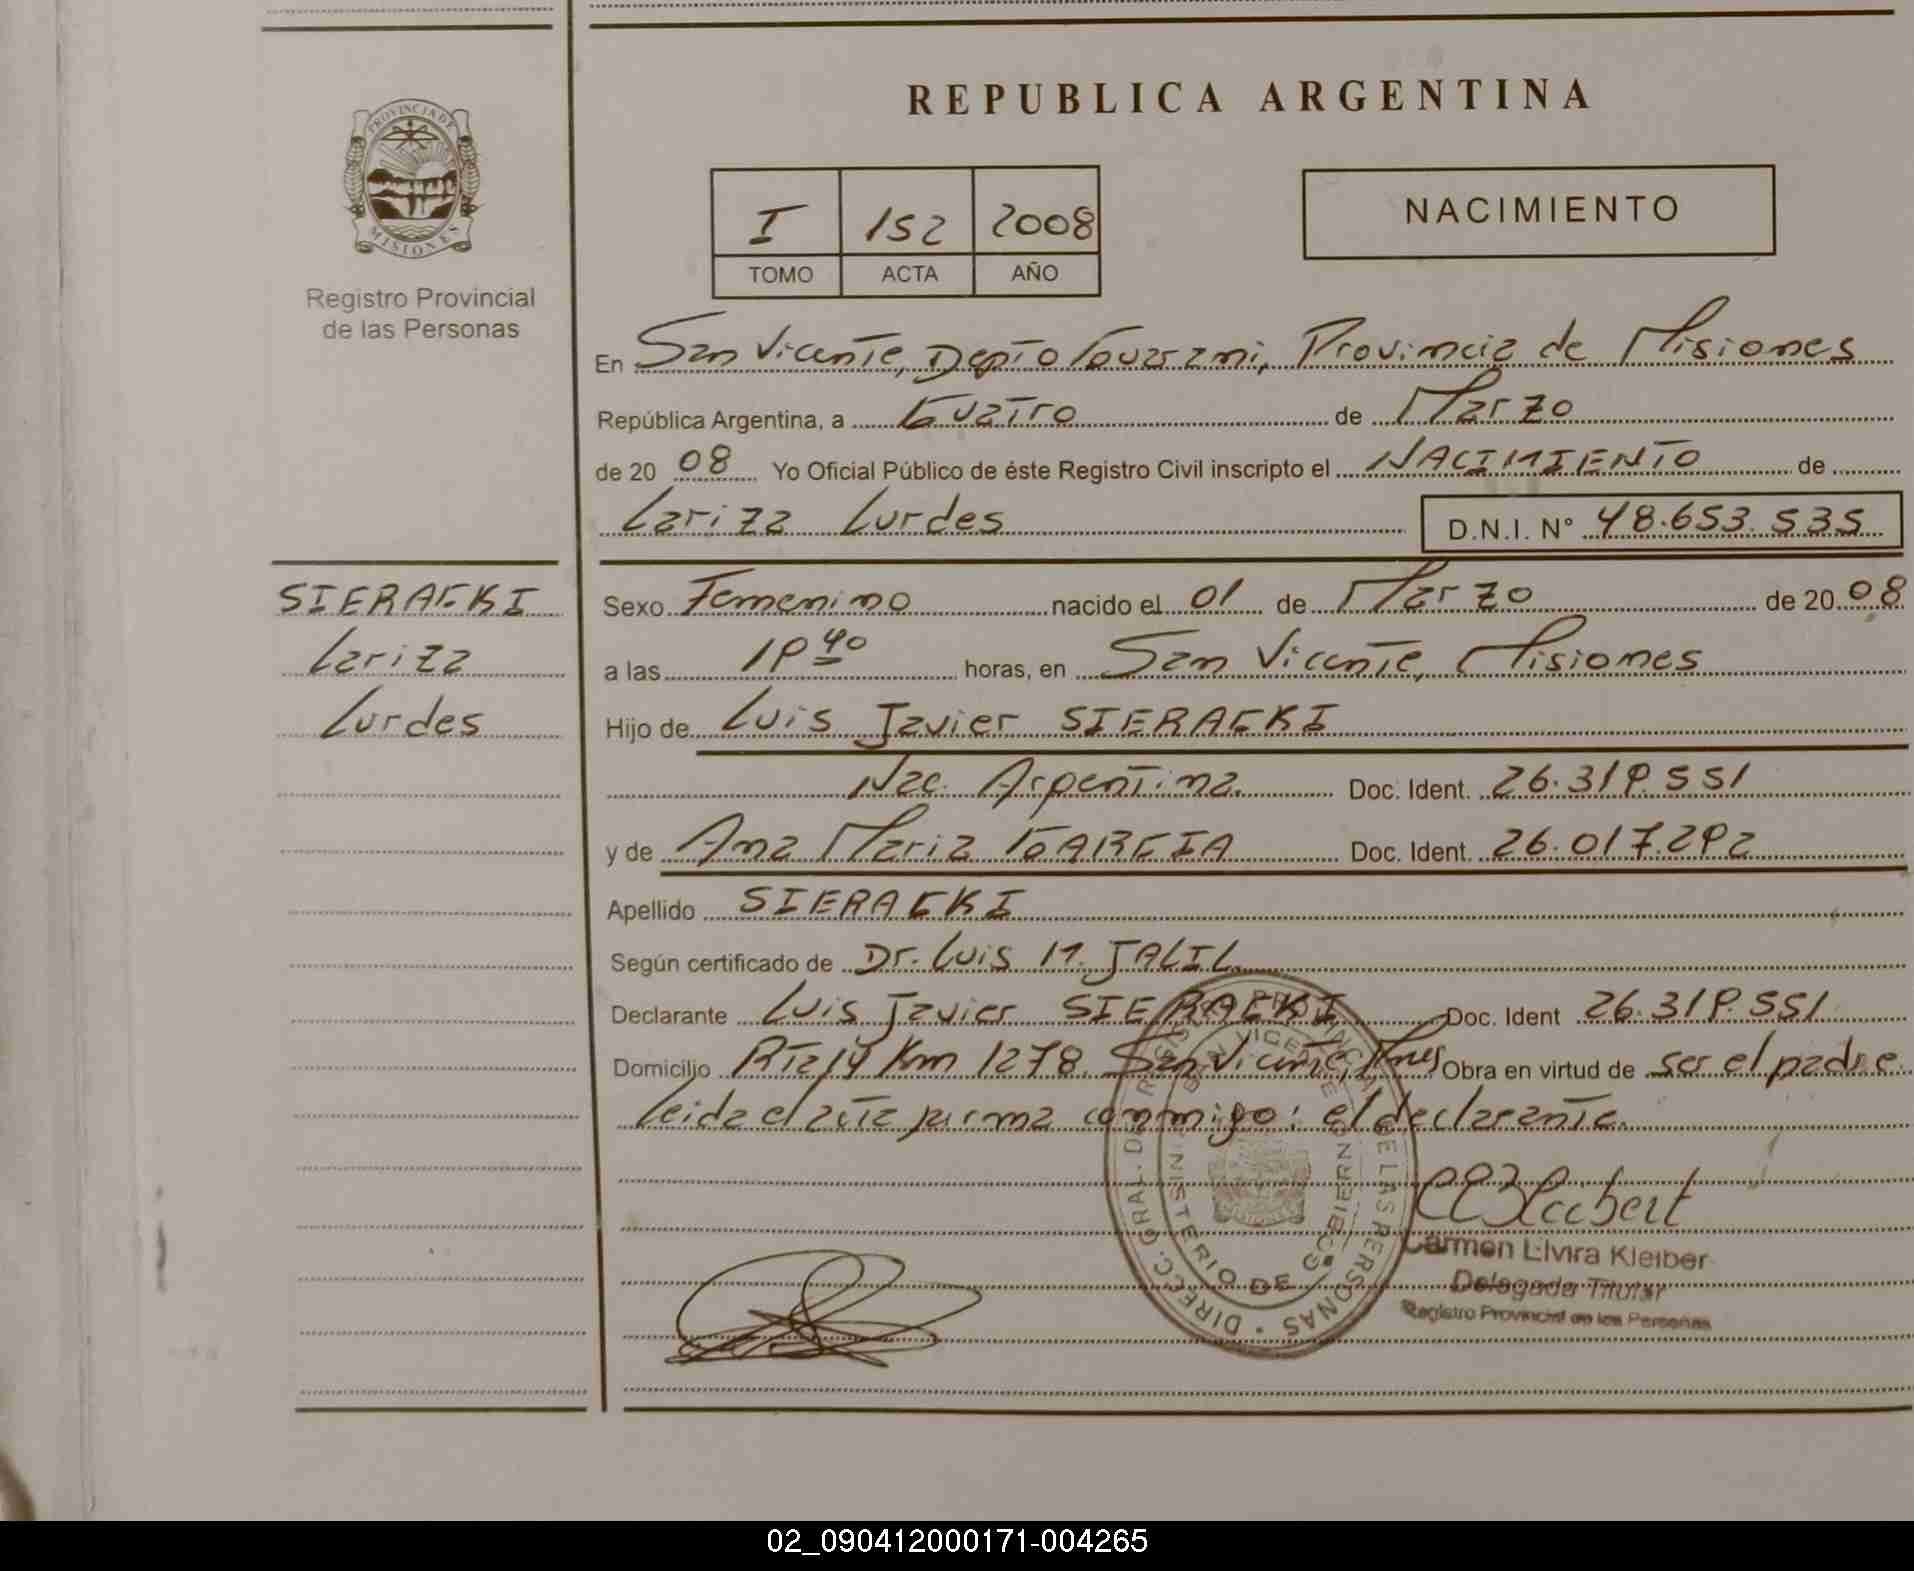 REPUBLICA ARGENTINA
PROVINCIA DE
MISIONES
Registro Provincial
de las Personas
I 152 2008
TOMO ACTA AÑO
NACIMIENTO
En San Vicente, Depto Guarani, Provincia de Misiones
República Argentina, a Cuatro de Marzo
de 20 08 Yo Oficial Público de éste Registro Civil inscripto el NACIMIENTO de
Lariza Lurdes D.N.I. N° 48.653.535
SIERACKI
Lariza
Lurdes
Sexo Femenino nacido el 01 de Marzo de 20 08
a las 19 40 horas, en San Vicente, Misiones
Hijo de Luis Javier SIERACKI
Nac. Argentina. Doc. Ident. 26.319.551
y de Ana Maria GARCIA Doc. Ident. 26.017.292
Apellido SIERACKI
Según certificado de Dr. Luis M. JALIL
Declarante Luis Javier SIERACKI Doc. Ident 26.319.551
Domicilio Rta 14 Km 1278. San Vicente, Mnes Obra en virtud de ser el padre
Leida el acta firma conmigo: el declarante.
DIRECC. GRAL. DE REGISTRO PROVINCIAL DE LAS PERSONAS
SAN VICENTE
MINISTERIO DE GOBIERNO
Carmen Elvira Kleiber
Delegada Titular
Registro Provincial de las Personas
02_090412000171-004265